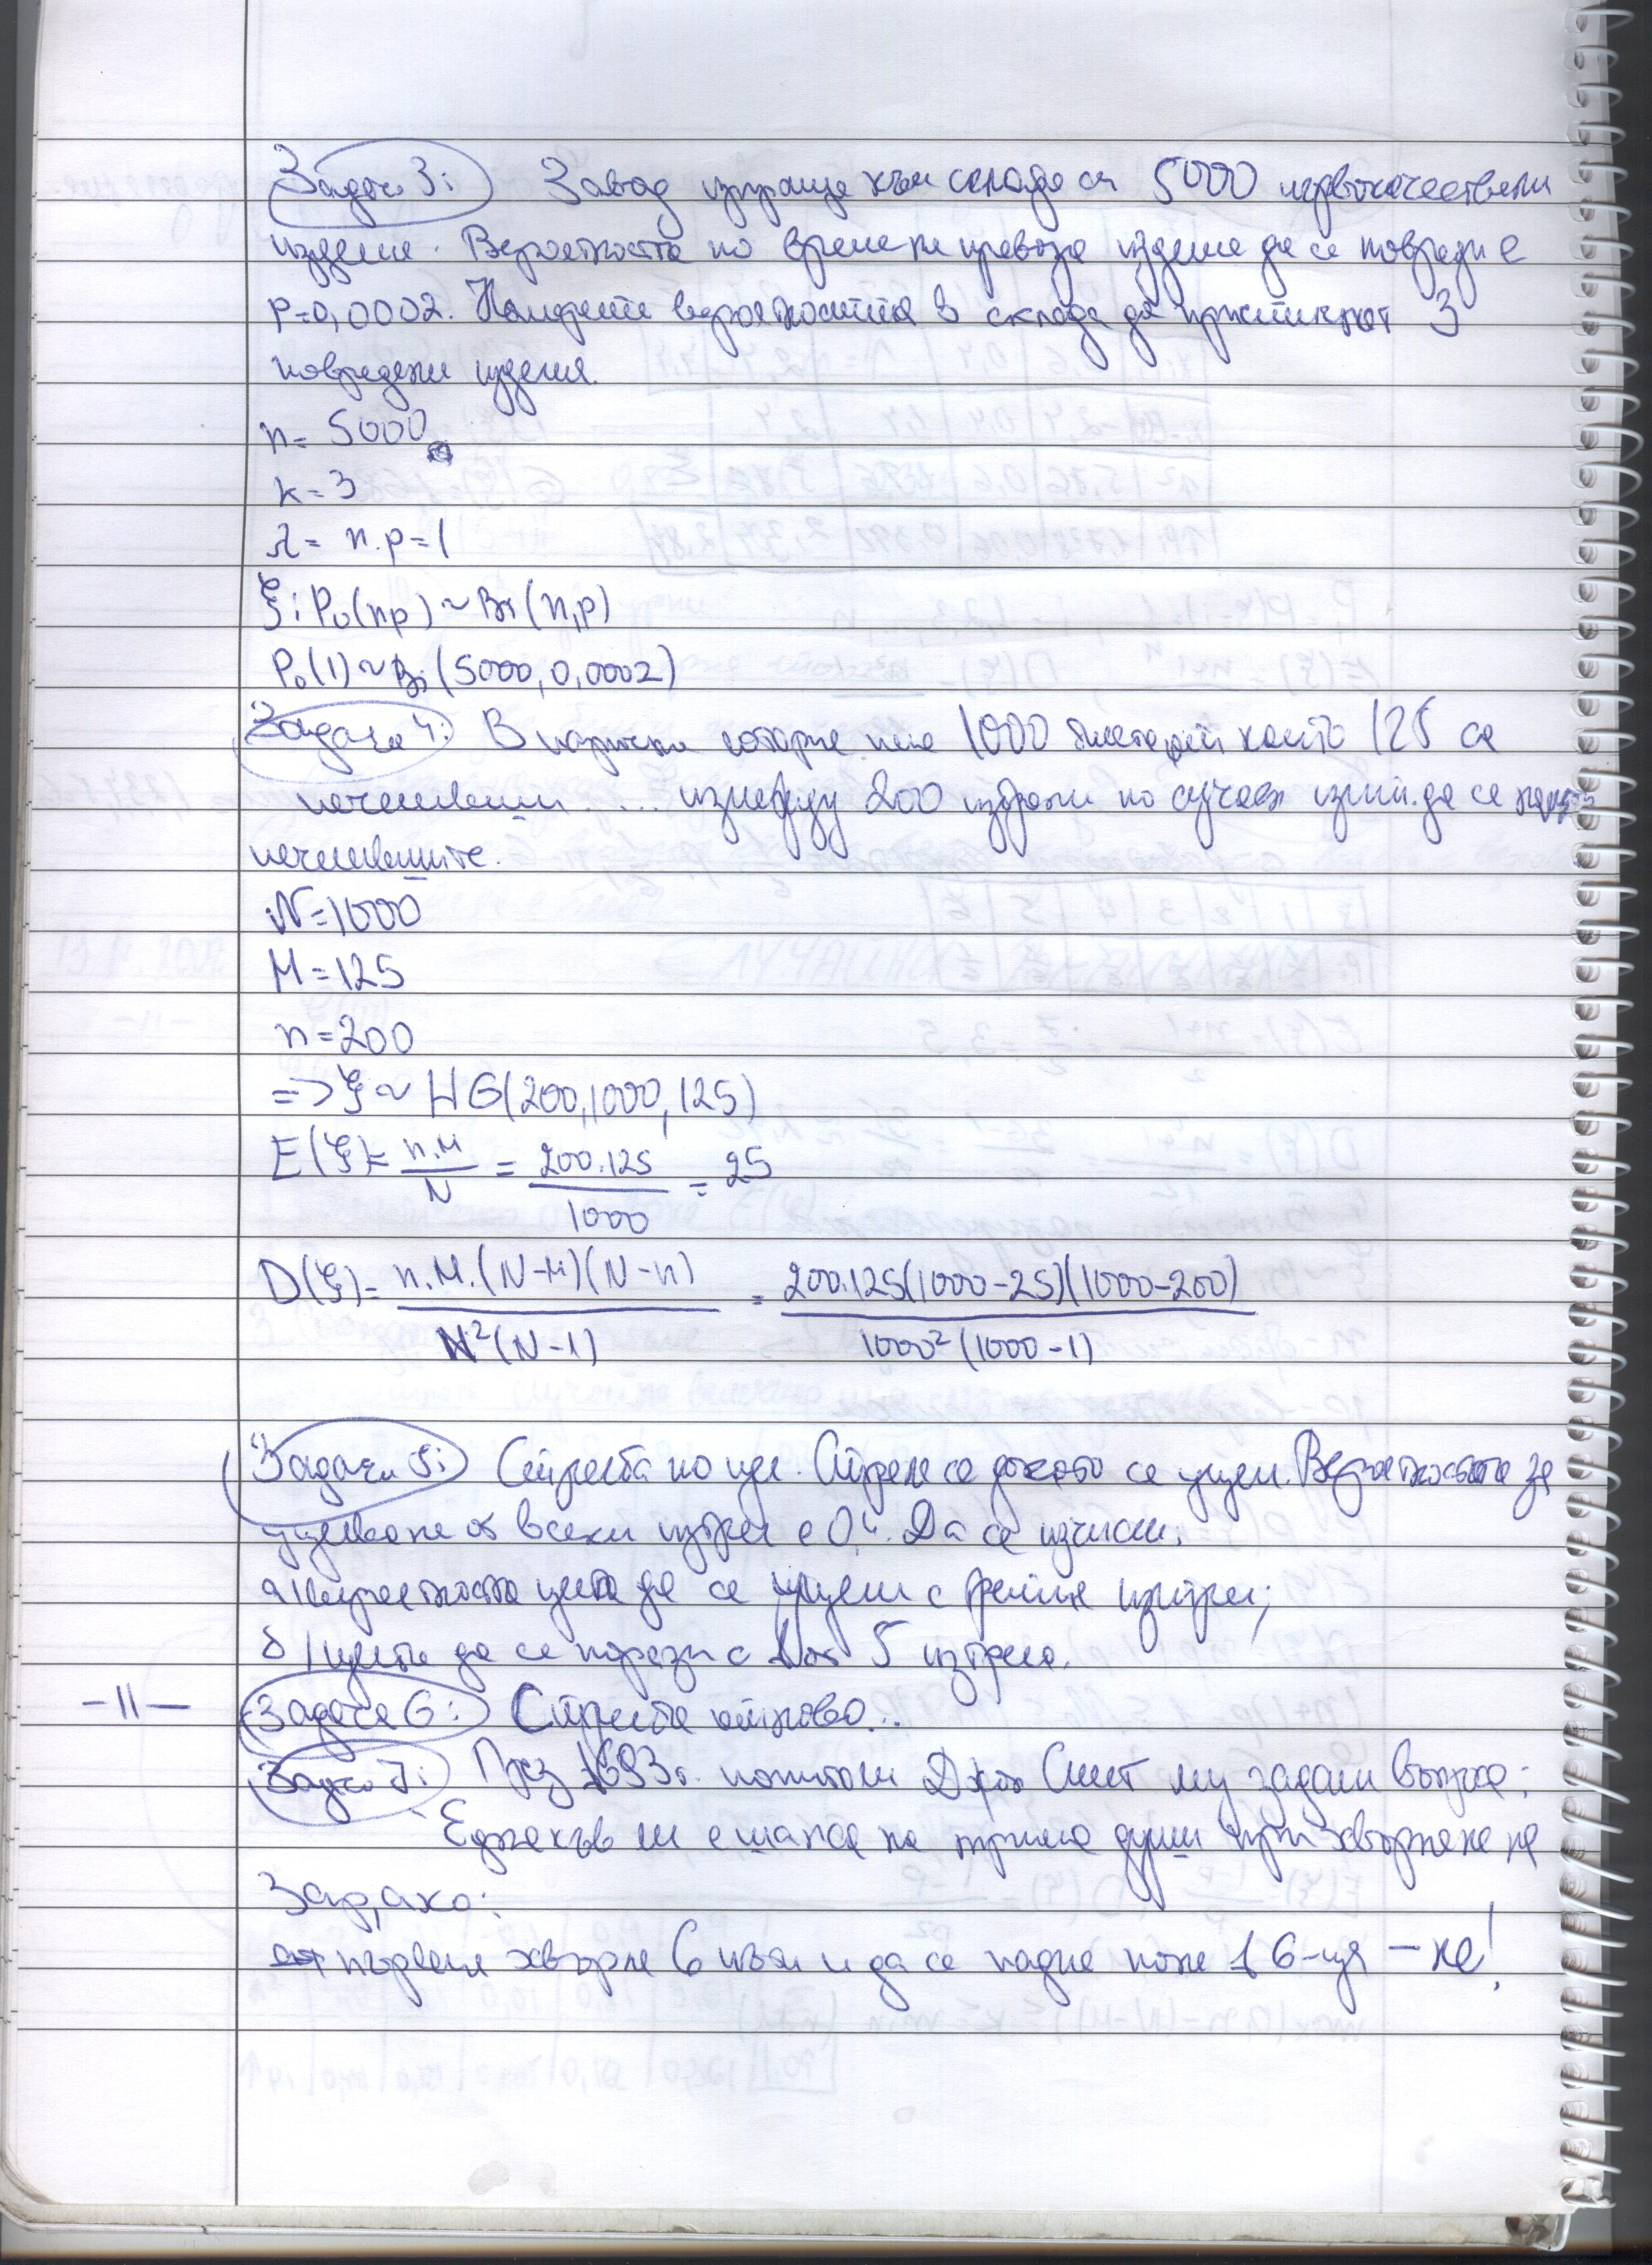 Задача 3: Завод изпраща към склада си 5000 първокачествени
изделия. Вероятността по време на превоза изделие да се повреди е
p=0,0002. Намерете вероятността в склада да пристигнат 3
повредени изделия.
n= 5000
k=3
λ= n.p=1
ξ: Po(np) ~ Bi(n,p)
Po(1) ~ Bi(5000, 0,0002)
Задача 4: В парична лотария има 1000 билета, от които 125 са
печеливши. ... измежду 200 избрани по случаен да се
печелившите.
N=1000
M=125
n=200
=> ξ ~ HG(200,1000,125)
E(ξ)= n.M / N = 200.125 / 1000 = 25
D(ξ)= n.M.(N-M)(N-n) / N²(N-1) = 200.125(1000-25)(1000-200) / 1000²(1000-1)
Задача 5: Стрелба по цел. Стреля се докато се уцели. Вероятността за
уцелване от всеки изстрел е 0,4. Да се изчисли:
а) вероятността целта да се уцели с изстрела;
б) целта да се порази с 5 изстрела.
-11-
Задача 6: отново...
Задача 7: През 1693г. попитали Смит му задали въпрос:
Еднакъв ли е шанса на трима души при хвърляне на
зар, ако:
първия хвърля 6 пъти и да се падне поне 1 6-ца - не!